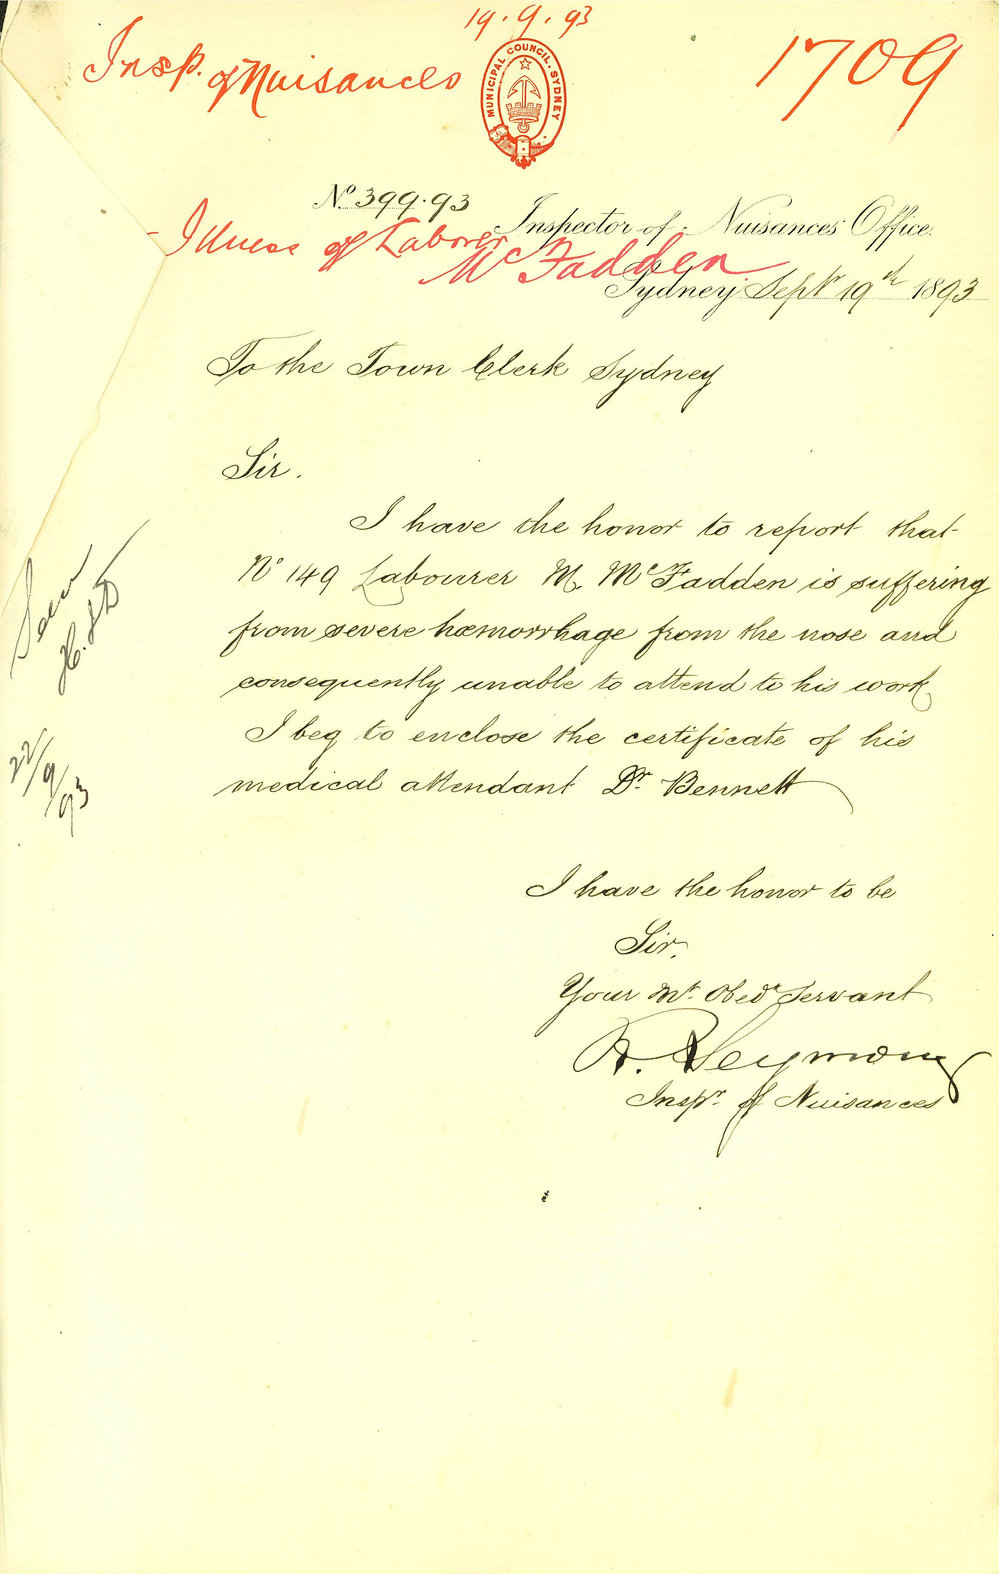 19.9.93
Insp. of Nuisances
1709
MUNICIPAL COUNCIL. SYDNEY
No. 399.93
Inspector of Nuisances' Office.
Illness of Laborer
McFadden
Sydney Sept 19th 1893
To the Town Clerk Sydney
Sir.
I have the honor to report that
No 149 Labourer M. McFadden is suffering
from severe hæmorrhage from the nose and
consequently unable to attend to his work
I beg to enclose the certificate of his
medical attendant Dr. Bennett
I have the honor to be
Sir.
Your Mt. Obedt Servant
R. Seymour
Inspr. of Nuisances
Seen
22/9/93